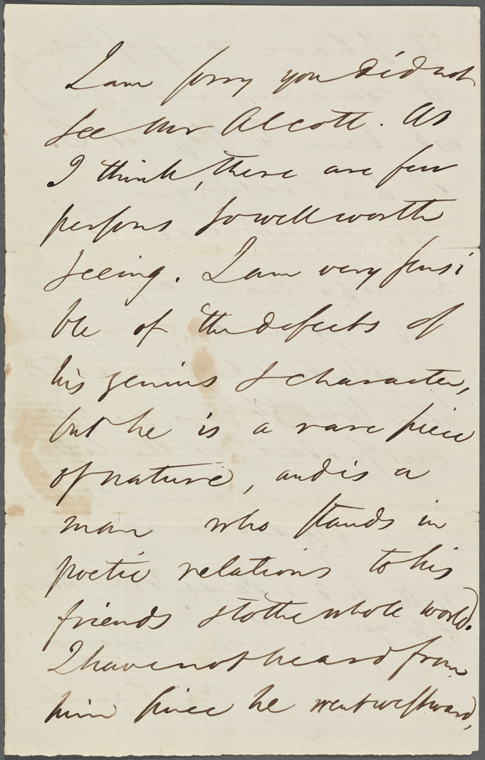 I am sorry you did not
see Mr Alcott. As
I think, there are few
persons so well worth
seeing. I am very sensi
ble of the defects of
his genius & character,
but he is a rare piece
of nature, and is a
man who stands in
poetic relations to his
friends & to the whole world.
I have not heard from
him since he went westward,